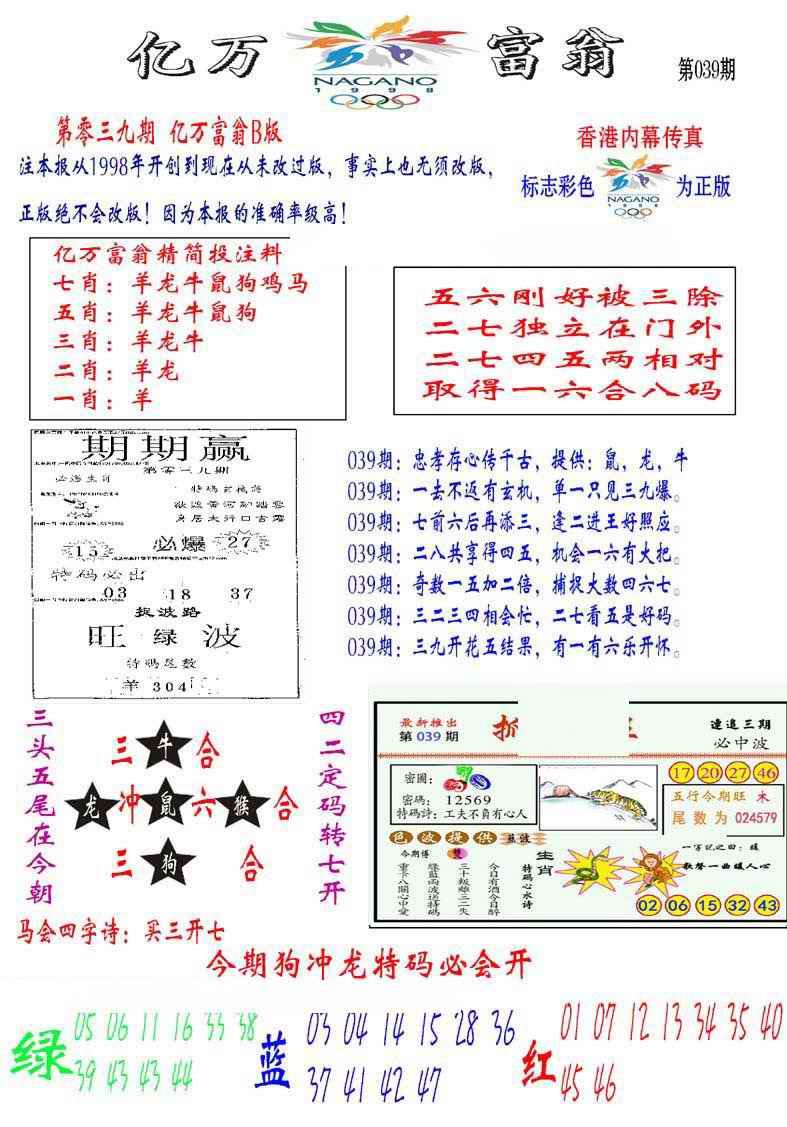 亿万
NAGANO
1998
富翁
第039期
第零三九期 亿万富翁B版
注本报从1998年开创到现在从未改过版，事实上也无须改版，
正版绝不会改版！因为本报的准确率级高！
香港内幕传真
标志彩色
NAGANO
1998
为正版
亿万富翁精简投注料
七肖：羊龙牛鼠狗鸡马
五肖：羊龙牛鼠狗
三肖：羊龙牛
二肖：羊龙
一肖：羊
五六刚好被三除
二七独立在门外
二七四五两相对
取得一六合八码
期期赢
第零三九期
必爆
15
27
特码必出
03 18 37
捉波路
旺 绿 波
特码尾数
羊 304
039期：忠孝存心传千古，提供：鼠，龙，牛
039期：一去不返有玄机，单一只见三九爆。
039期：七前六后再添三，逢二进王好照应。
039期：二八共享得四五，机会一六有大把。
039期：奇数一五加二倍，捕捉大数四六七。
039期：三二三四相会忙，二七看五是好码。
039期：三九开花五结果，有一有六乐开怀。
三头五尾在今朝
三 牛 合
龙 冲 鼠 六 猴 合
三 狗 合
四二定码转七开
最新推出
第 039 期
連追三期
必中波
密圖：
密碼： 12569
特碼詩：工夫不負有心人
17 20 27 46
五行今期旺 木
尾数为 024579
色波提供 藍波
今期傳 雙
今日有酒今日醉
三十叛離三二失
綠藍兩波送特碼
重下八關心中愛
生肖
特碼心水诗
一字记之曰：暖
歌聲一曲暖人心
02 06 15 32 43
马会四字诗：买三开七
今期狗冲龙特码必会开
绿
05 06 11 16 33 38
39 43 43 44
蓝
03 04 14 15 28 36
37 41 42 47
红
01 07 12 13 34 35 40
45 46